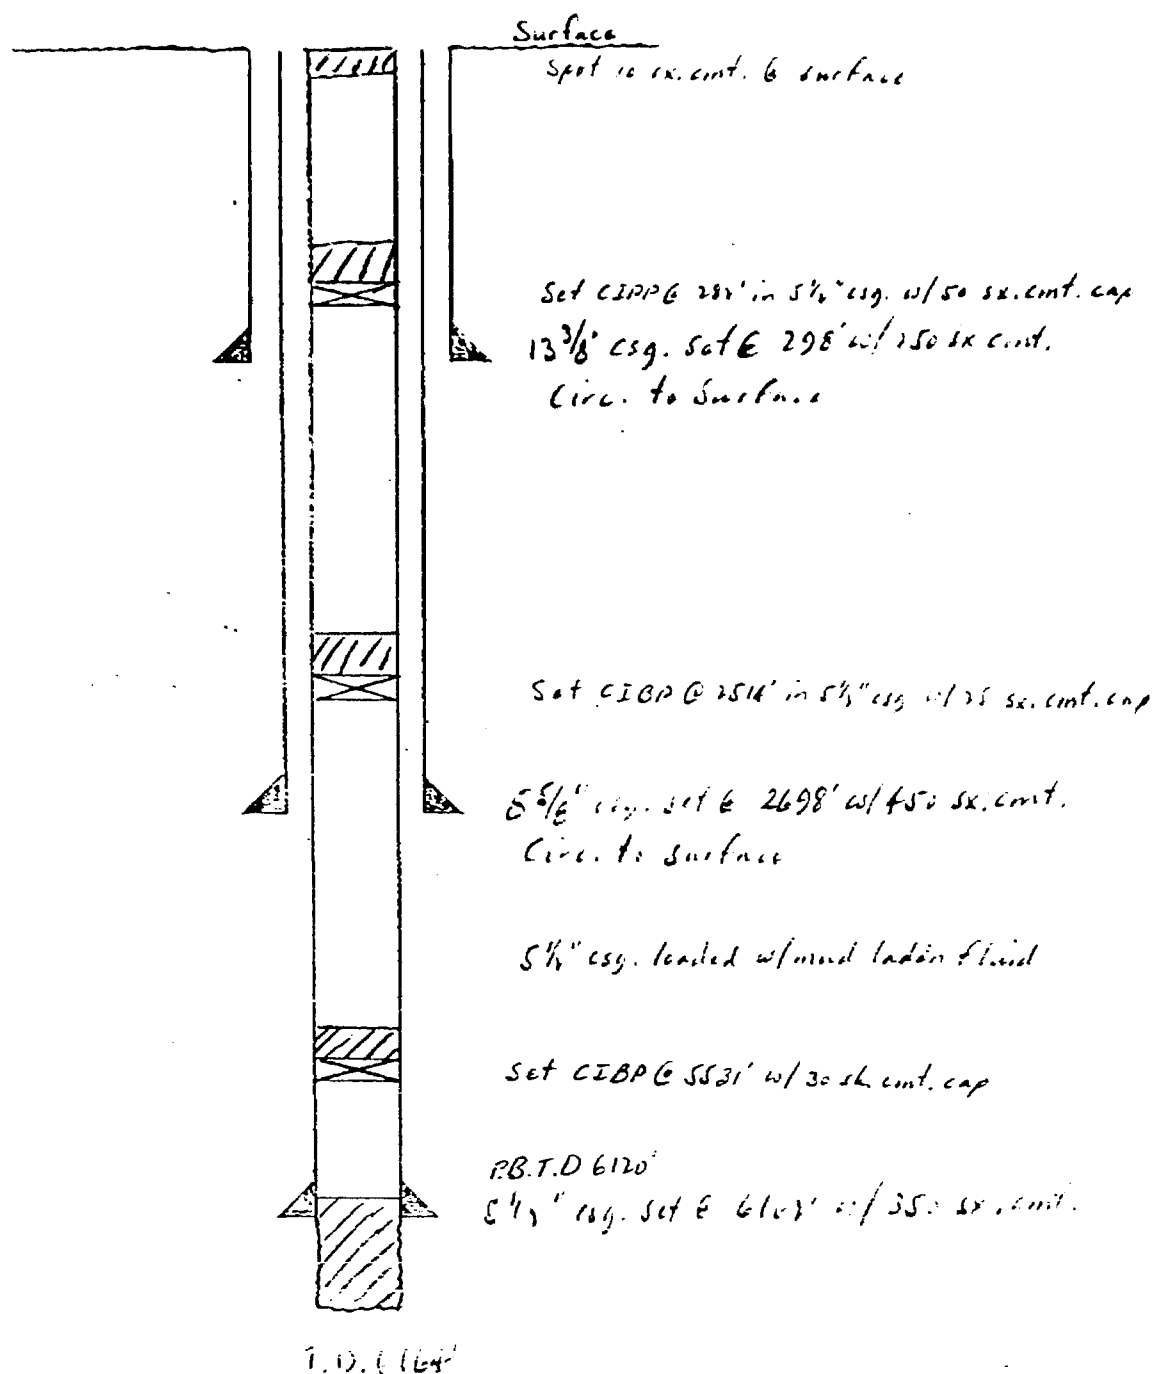 Surface
Spot 10 sx. cmt. @ surface
Set CIBP @ in 5½" csg. w/ 50 sx. cmt. cap
13 3/8" csg. set @ 298' w/ 250 sx cmt.
Circ. to Surface
Set CIBP @ 2514' in 5½" csg w/ 25 sx. cmt. cap
8 5/8" csg. set @ 2698' w/ 450 sx. cmt.
Circ. to surface
5½" csg. loaded w/ mud laden fluid
Set CIBP @ 5531' w/ 30 sk. cmt. cap
P.B.T.D 6120'
5½" csg. set @ w/ 350 sx. cmt.
T.D.